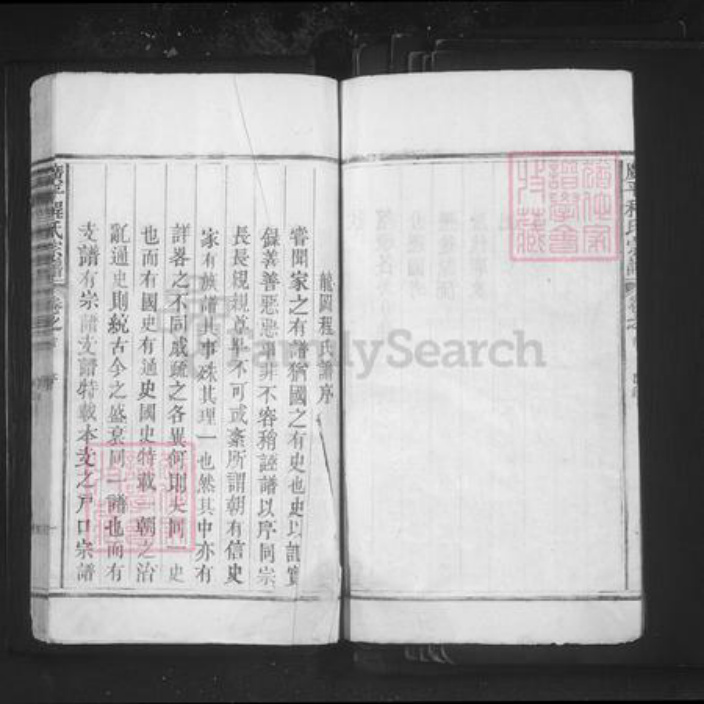 龍圖程氏譜序
嘗聞家之有譜猶國之有史也史以記實
錄善善惡惡是非不容稍誣譜以序同宗
長長親親尊卑不可或紊所謂朝有信史
家有族譜其事殊其理一也然其中亦有
詳畧之不同戚疏之各異何則夫同一史
也而有國史有通史國史特載一朝之治
亂通史則統古今之盛衰同一譜也而有
支譜有宗譜支譜特載本支之戶口宗譜
廣平程氏宗譜 卷之首 序
廣平程氏宗譜 卷之首
FamilySearch